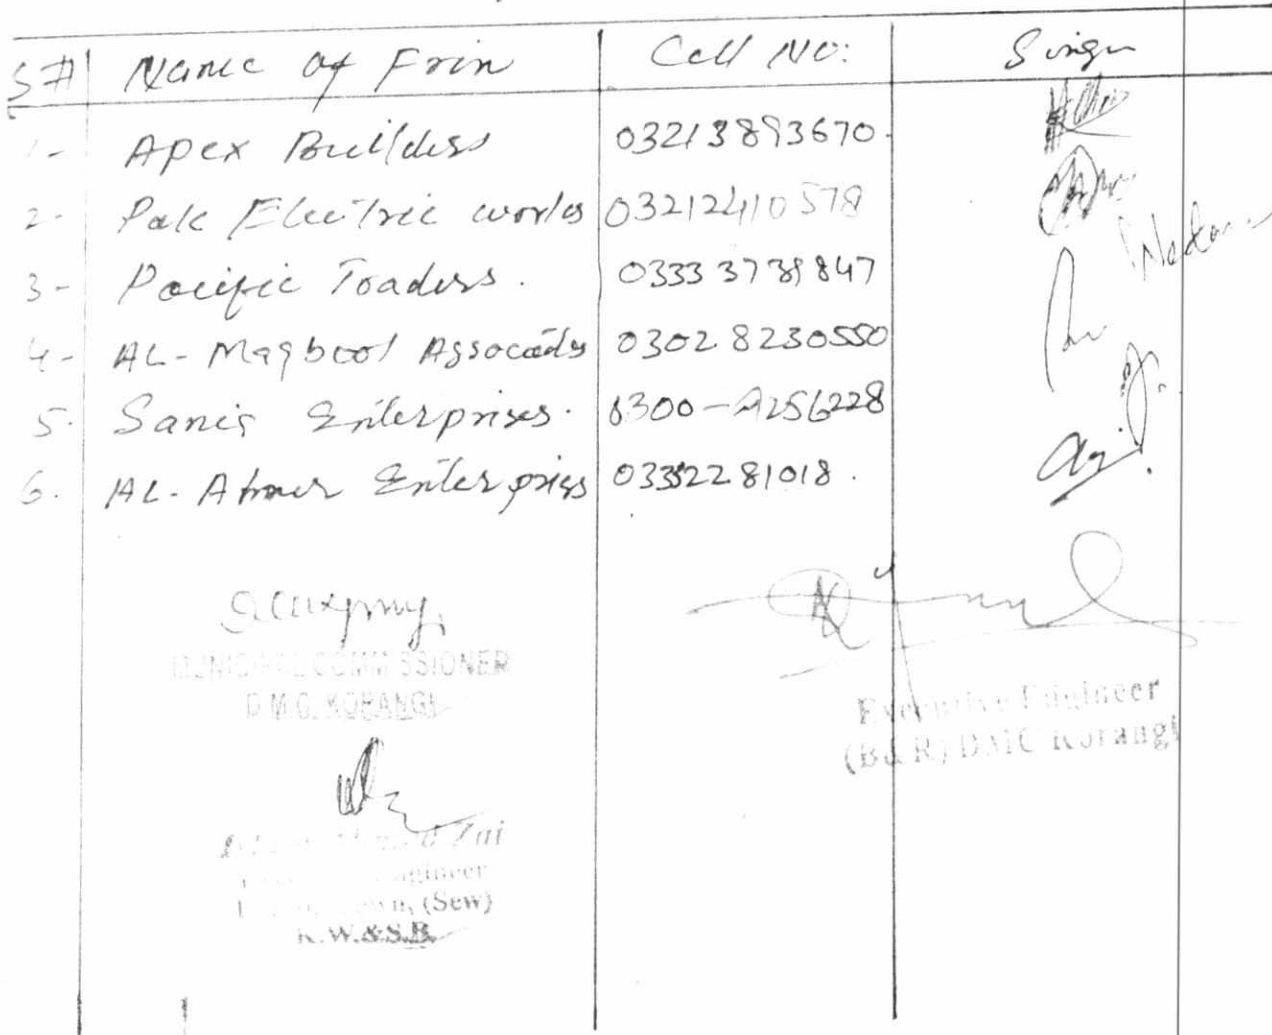 S# Name of Frim Cell NO: Singn
1- Apex Builders 03213893670
2- Pak Electric works 03212410578
3- Pacific Toaders. 03333739847
4- AL-Maqbool Assocads 03028230550
5. Sanis Enterprises. 0300-9256228
6. AL- Enterpriss 03352281018.
MUNICIPAL COMMISSIONER
D.M.C. KORANGI
Executive Engineer
(B&R) DMC Korangi
Zai
Engineer
(Sew)
K.W.&S.B.